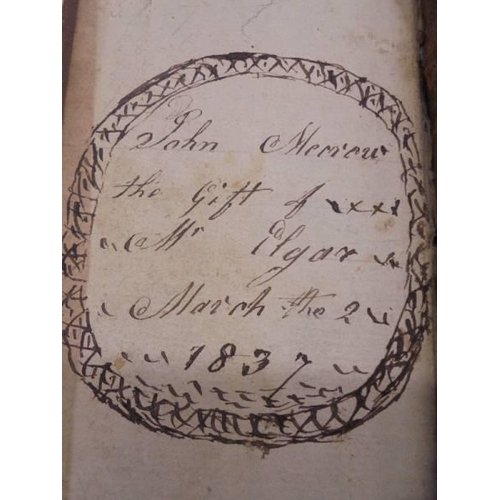 John Merrow
the Gift of xxx
Mr Elgar
March the 2
1837